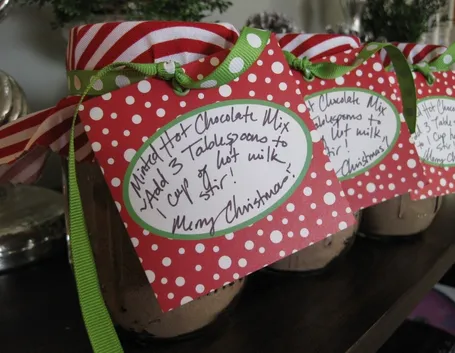 Minted Hot Chocolate Mix
Add 3 Tablespoons to
1 cup of hot milk,
stir!
Merry Christmas!
Chocolate Mix
Tablespoons to
hot milk,
stir!
Christmas!
Chocolate
3 Tablespoons
hot
Merry Christmas